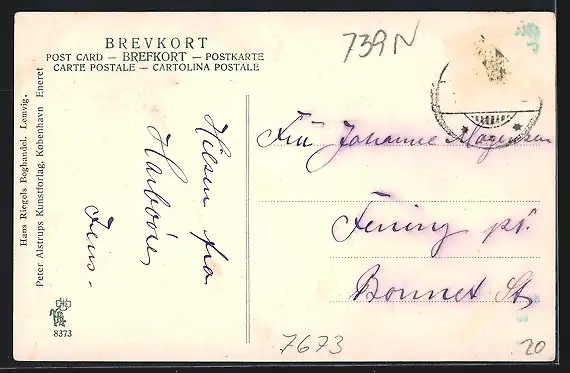 BREVKORT
POST CARD — BREFKORT — POSTKARTE
CARTE POSTALE — CARTOLINA POSTALE
739N
Hans Riegels Boghandel. Lemvig.
Peter Alstrups Kunstforlag, København Eneret
Hilsen fra
Harboøre
Jens.
Fru Johanne Mogensen
Fering pr.
Bonnet St
8373
7673
20